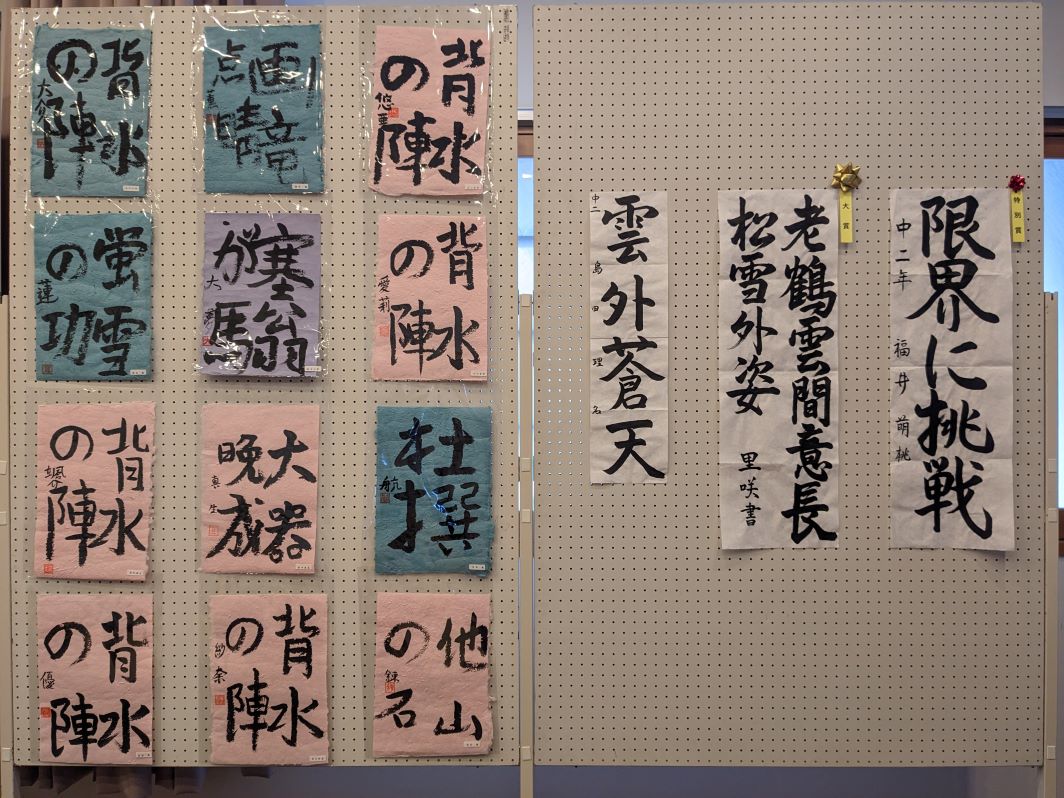 背水
の陣
画竜
点睛
背水
の陣
悠亜
蛍雪
の功
蓮
塞翁
が馬
背水
の陣
愛莉
背水
の陣
颯
大器
晩成
真生
杜撰
航
背水
の陣
優
背水
の陣
紗奈
他山
の石
錬
特別賞
限界に挑戦
中二年 福井萌桃
大賞
老鶴雲間意長
松雪外姿
里咲書
雲外蒼天
中二 島田理名